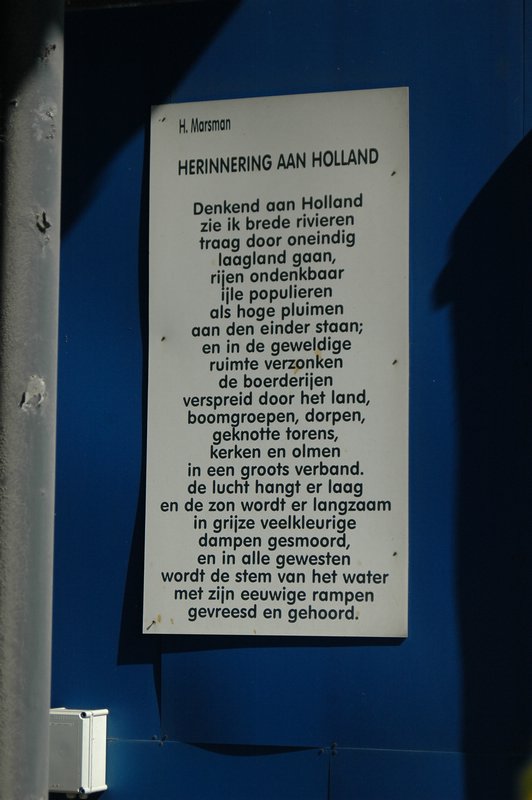 H. Marsman
HERINNERING AAN HOLLAND
Denkend aan Holland
zie ik brede rivieren
traag door oneindig
laagland gaan,
rijen ondenkbaar
ijle populieren
als hoge pluimen
aan den einder staan;
en in de geweldige
ruimte verzonken
de boerderijen
verspreid door het land,
boomgroepen, dorpen,
geknotte torens,
kerken en olmen
in een groots verband.
de lucht hangt er laag
en de zon wordt er langzaam
in grijze veelkleurige
dampen gesmoord,
en in alle gewesten
wordt de stem van het water
met zijn eeuwige rampen
gevreesd en gehoord.